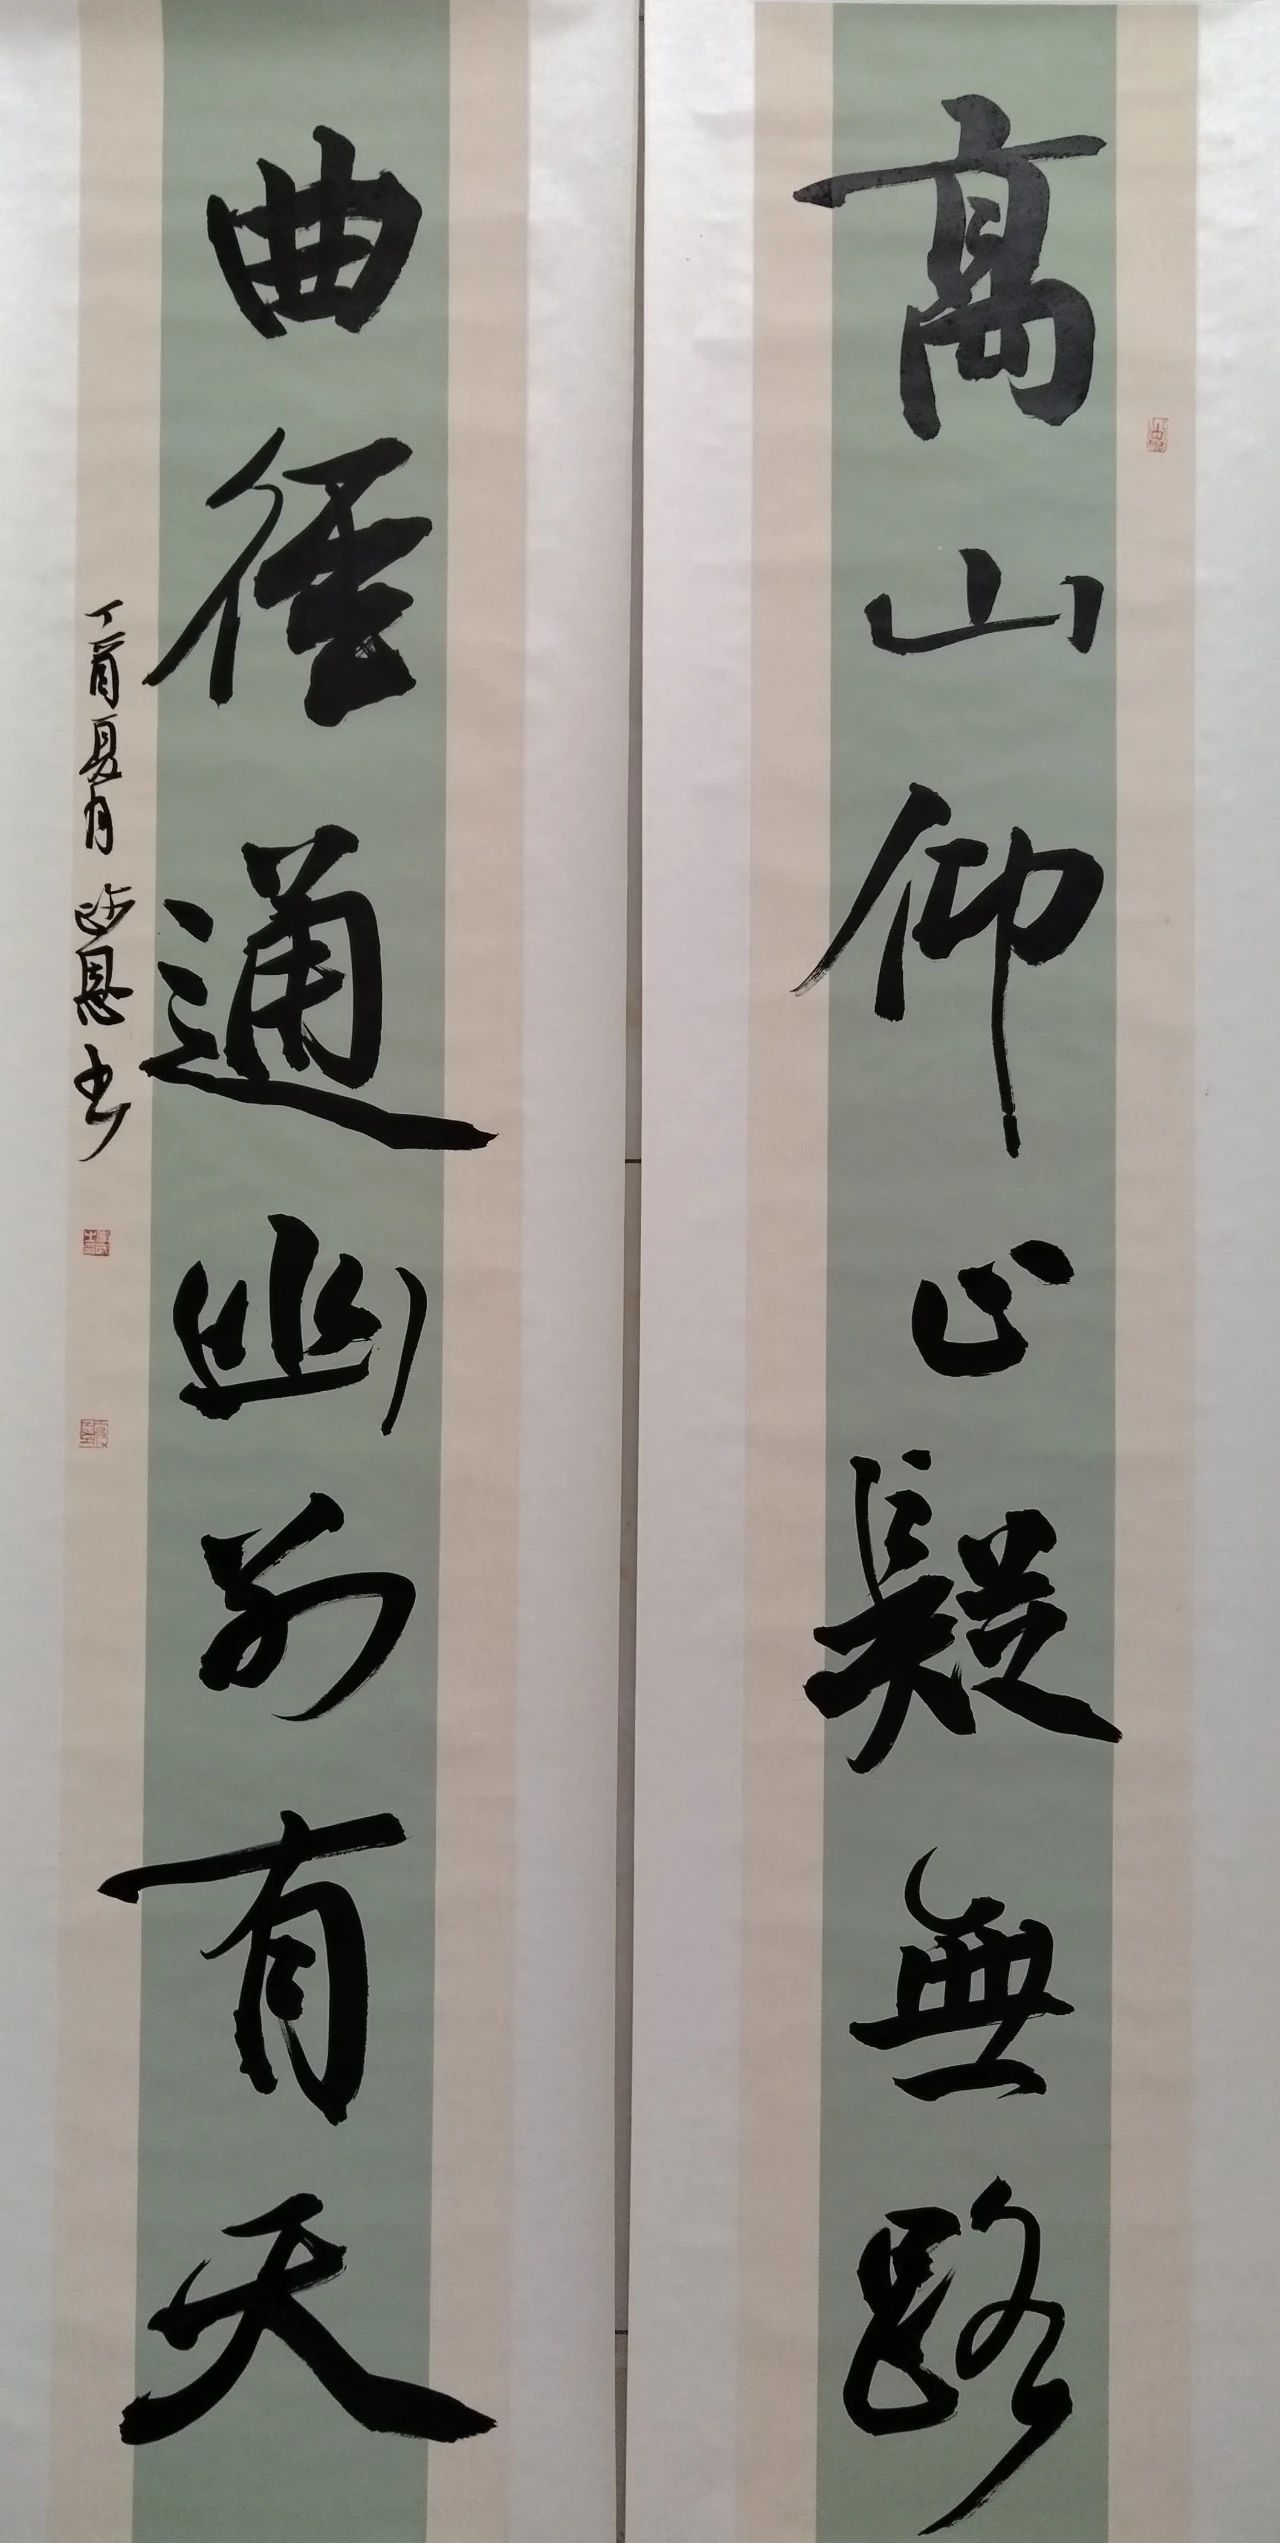 高山仰止疑無路
曲徑通幽别有天
丁酉夏月 恩书